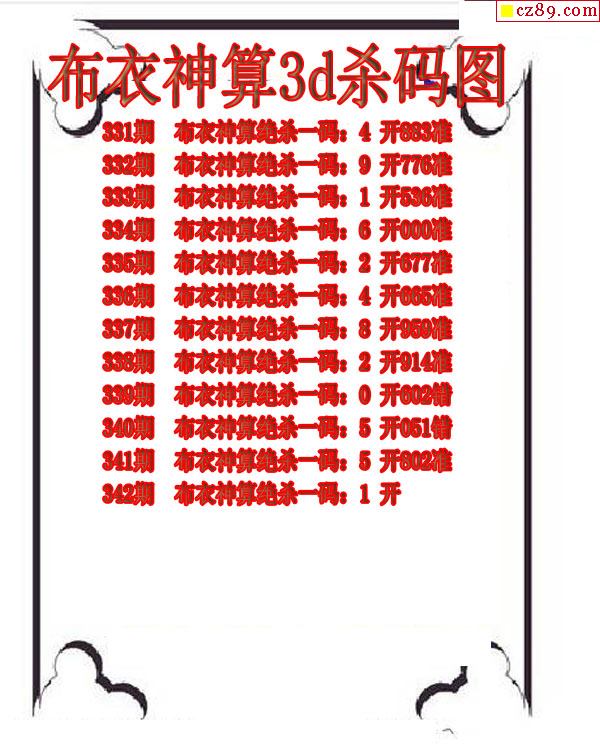 cz89.com
布衣神算3d杀码图
331期 布衣神算绝杀一码：4 开883准
332期 布衣神算绝杀一码：9 开776准
333期 布衣神算绝杀一码：1 开536准
334期 布衣神算绝杀一码：6 开000准
335期 布衣神算绝杀一码：2 开677准
336期 布衣神算绝杀一码：4 开665准
337期 布衣神算绝杀一码：8 开959准
338期 布衣神算绝杀一码：2 开914准
339期 布衣神算绝杀一码：0 开602错
340期 布衣神算绝杀一码：5 开051错
341期 布衣神算绝杀一码：5 开802准
342期 布衣神算绝杀一码：1 开